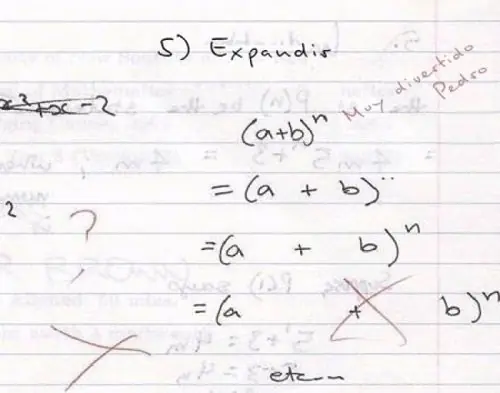 5) Expandir
x² + x - 2
Muy divertido
Pedro
(a+b)ⁿ
= (a + b)ⁿ
2
?
=(a + b)ⁿ
= (a + b)ⁿ
etc...